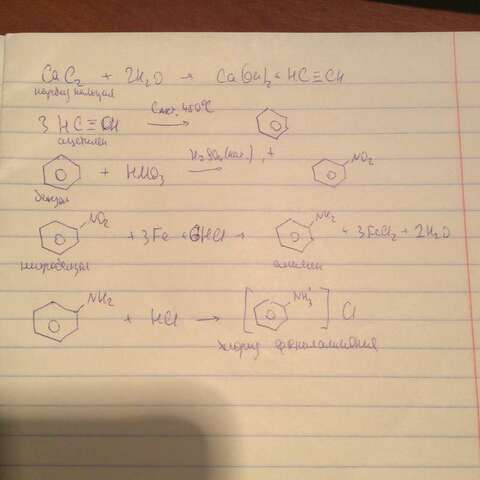 CaC₂ + 2H₂O → Ca(OH)₂ + HC≡CH
карбид кальция
3 HC≡CH C акт, 450°C →
ацетилен
+ HNO₃ H₂SO₄(кат.), t → NO₂
бензол
NO₂ + 3Fe + 6HCl → NH₂ + 3FeCl₂ + 2H₂O
нитробензол анилин
NH₂ + HCl → [ NH₃⁺ ] Cl
хлорид фениламмония